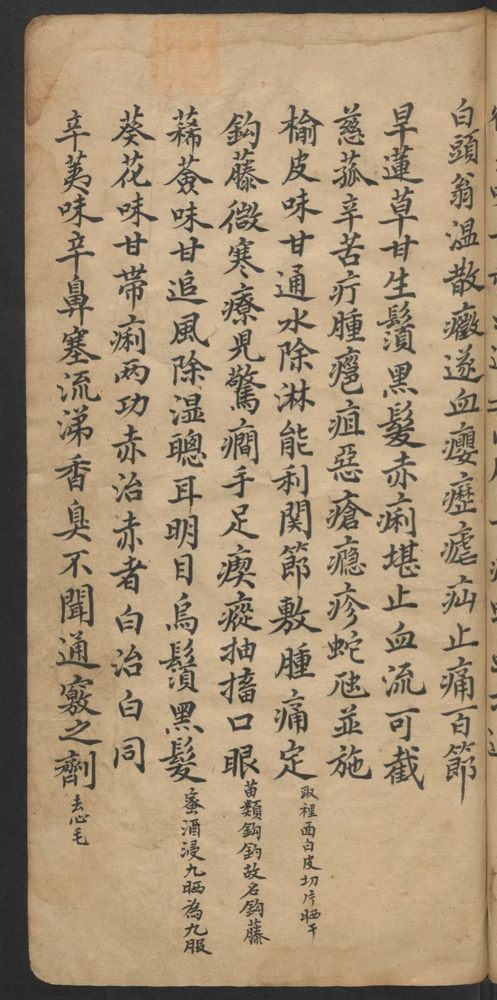 白頭翁温散癥逐血癭癧瘧疝止痛百節
旱蓮草甘生鬚黑髮赤痢堪止血流可截
慈菰辛苦疔腫癰疽惡瘡癮疹蛇虺並施
榆皮味甘通水除淋能利関節敷腫痛定 取裡面白皮切片晒干
鈎藤微寒療児驚癎手足瘈瘲抽搐口眼 苗類鈎鈎故名鈎藤
莃薟味甘追風除湿聰耳明目烏鬚黑髮 蜜酒浸九晒為九服
葵花味甘帶痢兩功赤治赤者白治白同
辛荑味辛鼻塞流涕香臭不聞通竅之劑 去心毛